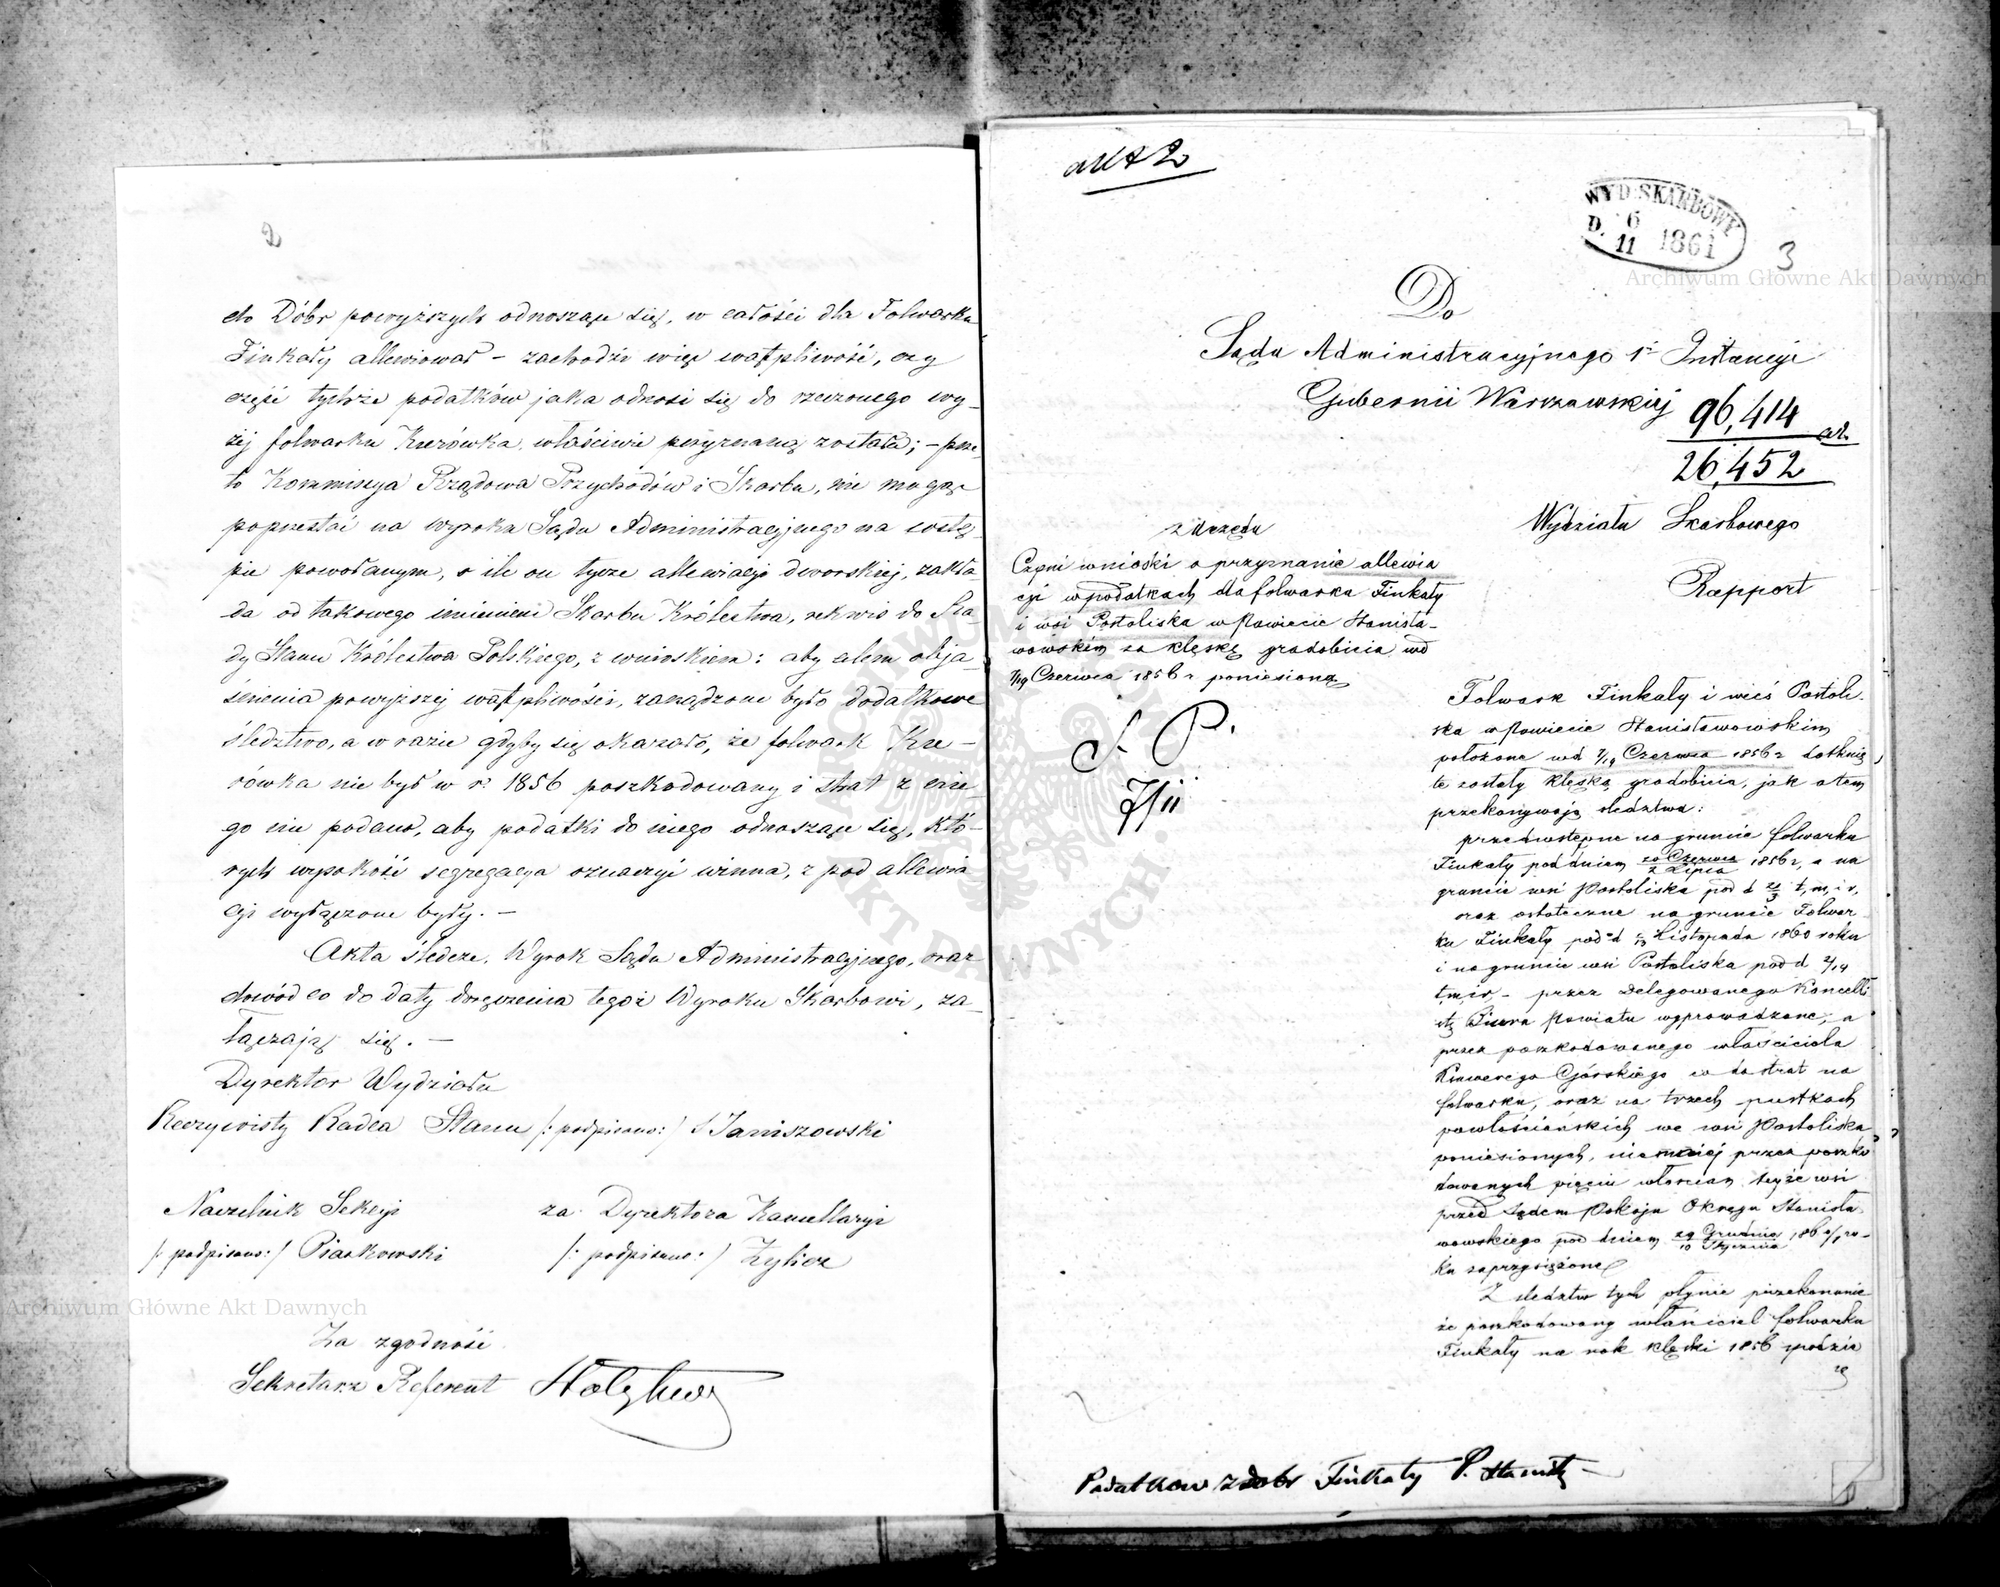 2
do Dóbr powyższych odnoszące się, w całości dla Folwarku
Finkały allewiował – zachodzi więc wątpliwość, czy
część tychże podatków jaka odnosi się do rzeczonego wy-
żej folwarku Kurówka, właściwie przyznaną została; – prze-
to Kommissya Rządowa Przychodów i Skarbu, nie mogąc
poprzestać na wyroku Sądu Administracyjnego na wstę-
pie powołanym, o ile on tycze allewiacyi dworskiej, zakła
da od takowego imieniem Skarbu Królestwa, rekurs do Ra-
dy Stanu Królestwa Polskiego, z wnioskiem: aby celem obja-
śnienia powyższej wątpliwości, zarządzone było dodatkowe
śledztwo, a w razie gdyby się okazało, że folwark Ku-
rówka nie był w r. 1856 poszkodowany i strat z nie
go nie podano, aby podatki do niego odnoszące się, któ-
rych wysokość segregacya oznaczyć winna, z pod allewia
cyi wyłączone były. –
Akta śledcze, Wyrok Sądu Administracyjnego, oraz
dowód co do daty doręczenia tegoż Wyroku Skarbowi, za-
łączają się. –
Dyrektor Wydziału
Rzeczywisty Radca Stanu /: podpisano: / Janiszowski
Naczelnik Sekcyi za Dyrektora Kancellaryi
/: podpisano: / Piaskowski /: podpisano: / Żylicz
Za zgodność
Sekretarz Referent
Akt 2
WYD. SKARBOWY
D. 6/11 1861
3
Do
Sądu Administracyjnego 1éj Instancyi
Gubernii Warszawskiej
96,414
26,452
Wydziału Skarbowego
Rapport
z Urzędu
Czyni wnioski o przyznanie allewia
cyi w podatkach dla folwarku Finkały
i wsi Postoliska w Powiecie Stanisła-
wowskim za klęskę gradobicia w d
7/19 Czerwca 1856 r poniesioną
S. P.
7/11
Folwark Finkały i wieś Postoli-
ska w Powiecie Stanisławowskim
położone w d 7/19 Czerwca 1856 r dotknię
te zostały klęską gradobicia, jak o tem
przekonywają śledztwa:
przedwstępne na gruncie folwarku
Finkały pod dniem 20 Czerwca/2 Lipca 1856 r, a na
gruncie wsi Postoliska pod d 21/3 t, m, i r,
oraz ostateczne na gruncie Folwar
ku Finkały pod d Listopada 1860 roku
i na gruncie wsi Postoliska pod d 2/14
t, m, i r, – przez Delegowanego Kancelli
stę Biura Powiatu wyprowadzone, a
przez poszkodowanego właściciela
Xawerego Górskiego co do strat na
folwarku, oraz na trzech pustkach
powłościańskich we wsi Postoliska
poniesionych, niemniej przez poszko
dowanych pięciu włościan tejże wsi
przed Sądem Pokoju Okręgu Stanisła-
wowskiego pod dniem 29 Grudnia/10 Stycznia 1860/1 ro-
ku zaprzysiężone
Z śledztw tych płynie przekonanie
że poszkodowany właściciel folwarku
Finkały na rok klęski 1856
Podatków z dóbr Finkały P. Stanisł